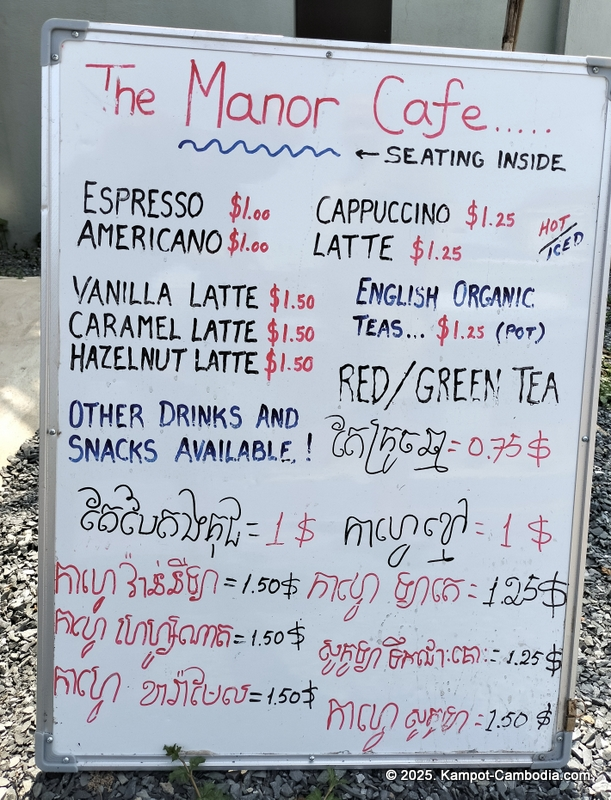 The Manor Cafe.....
← SEATING INSIDE
ESPRESSO $1.00
AMERICANO $1.00
CAPPUCCINO $1.25
LATTE $1.25
HOT/ICED
VANILLA LATTE $1.50
CARAMEL LATTE $1.50
HAZELNUT LATTE $1.50
ENGLISH ORGANIC
TEAS... $1.25 (POT)
RED/GREEN TEA
តែក្រូចឆ្មា = 0.75 $
OTHER DRINKS AND
SNACKS AVAILABLE !
= 1 $
កាហ្វេខ្មៅ = 1 $
កាហ្វេ វ៉ាន់នីឡា = 1.50 $
កាហ្វេ ឡាតេ = 1.25 $
កាហ្វេ = 1.50 $
សូកូឡា ទឹកដោះគោ = 1.25 $
កាហ្វេ ខារ៉ាមែល = 1.50 $
កាហ្វេ សូកូឡា = 1.50 $
© 2025. Kampot-Cambodia.com